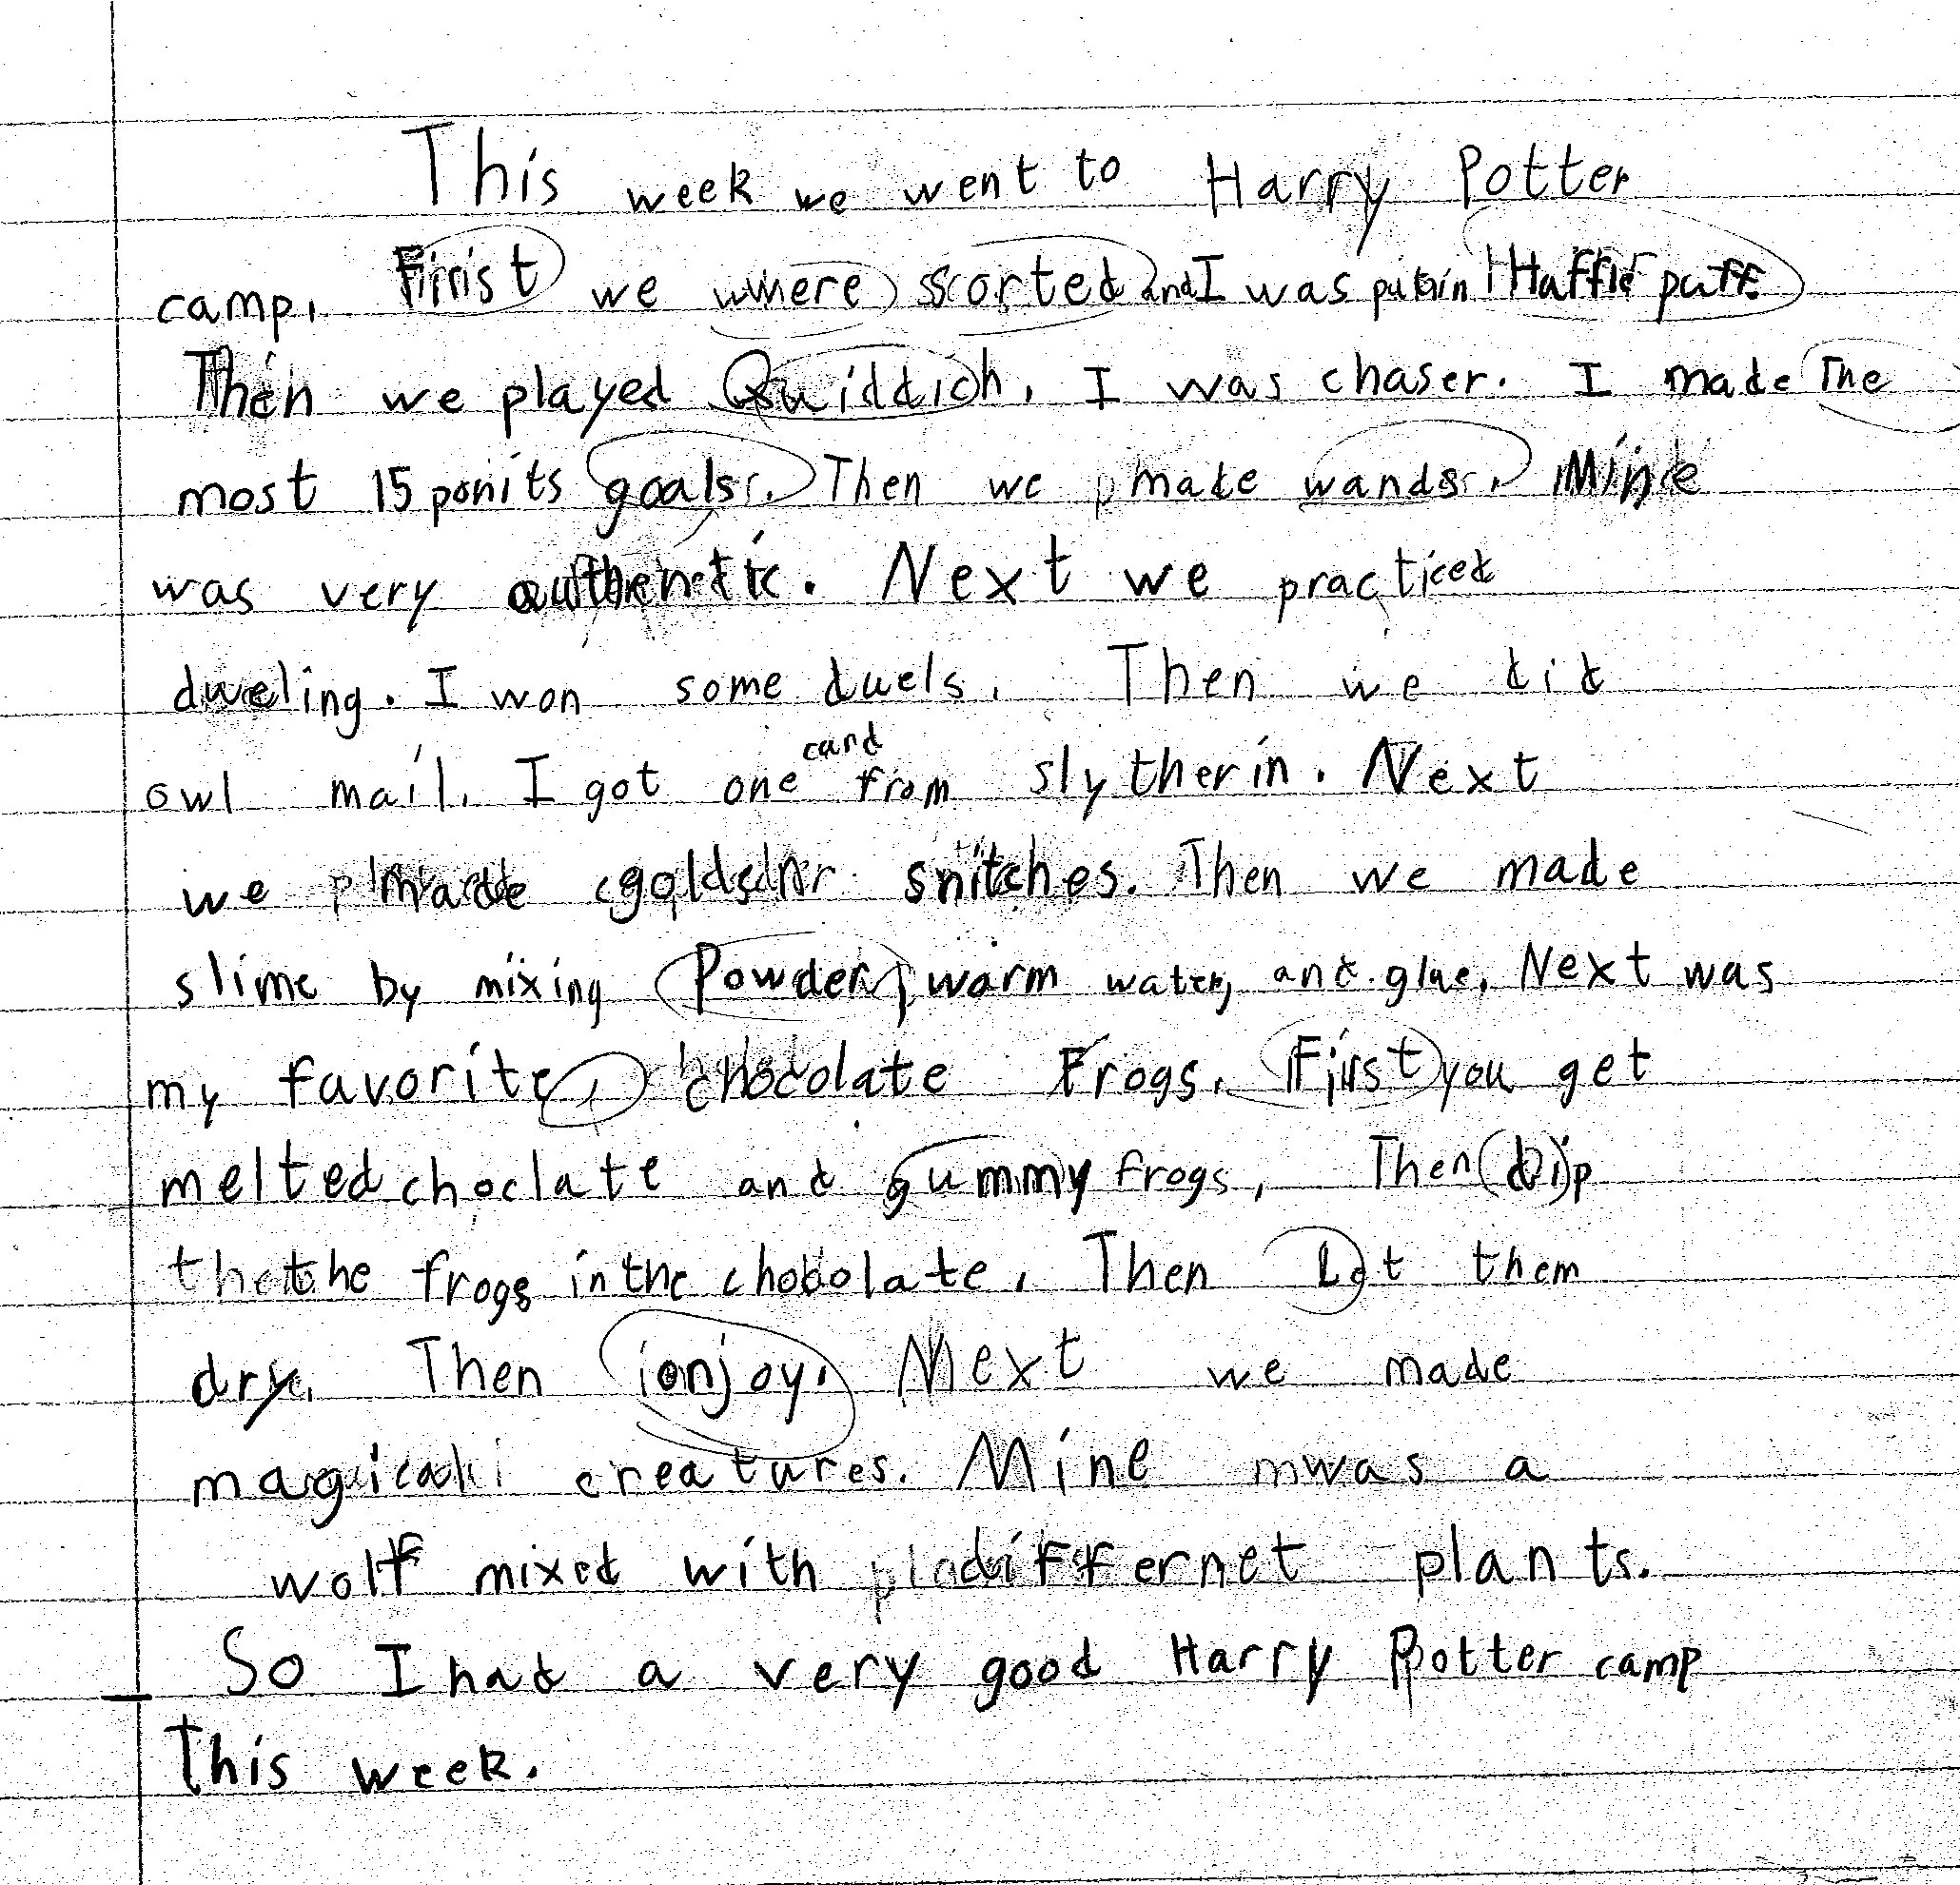 This week we went to Harry Potter
camp. First we where sorted and I was put in Haffle puff.
Then we played Quiddich. I was chaser. I made the
most 15 ponits goals. Then we made wands. Mine
was very authentic. Next we practiced
dweling. I won some duels. Then we did
owl mail. I got one card from slytherin. Next
we made golden snitches. Then we made
slime by mixing Powder, warm water, and glue. Next was
my favorite, chocolate Frogs. First you get
melted choclate and gummy frogs. Then dip
the frogs in the choclate. Then let them
dry. Then enjoy. Next we made
magical creatures. Mine was a
wolf mixed with differnet plants.
So I had a very good Harry Potter camp
This week.